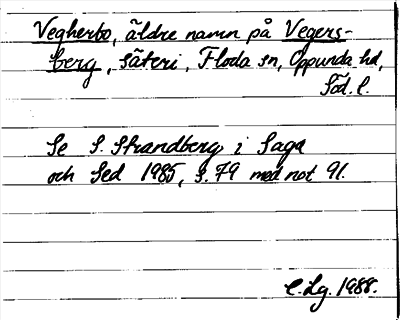 Vegherbo, äldre namn på Vegers-
berg, säteri, Floda sn, Oppunda hd,
Söd. l.
Se S. Strandberg i Saga
och Sed 1985, s. 79 med not 91.
C. Lg. 1988.